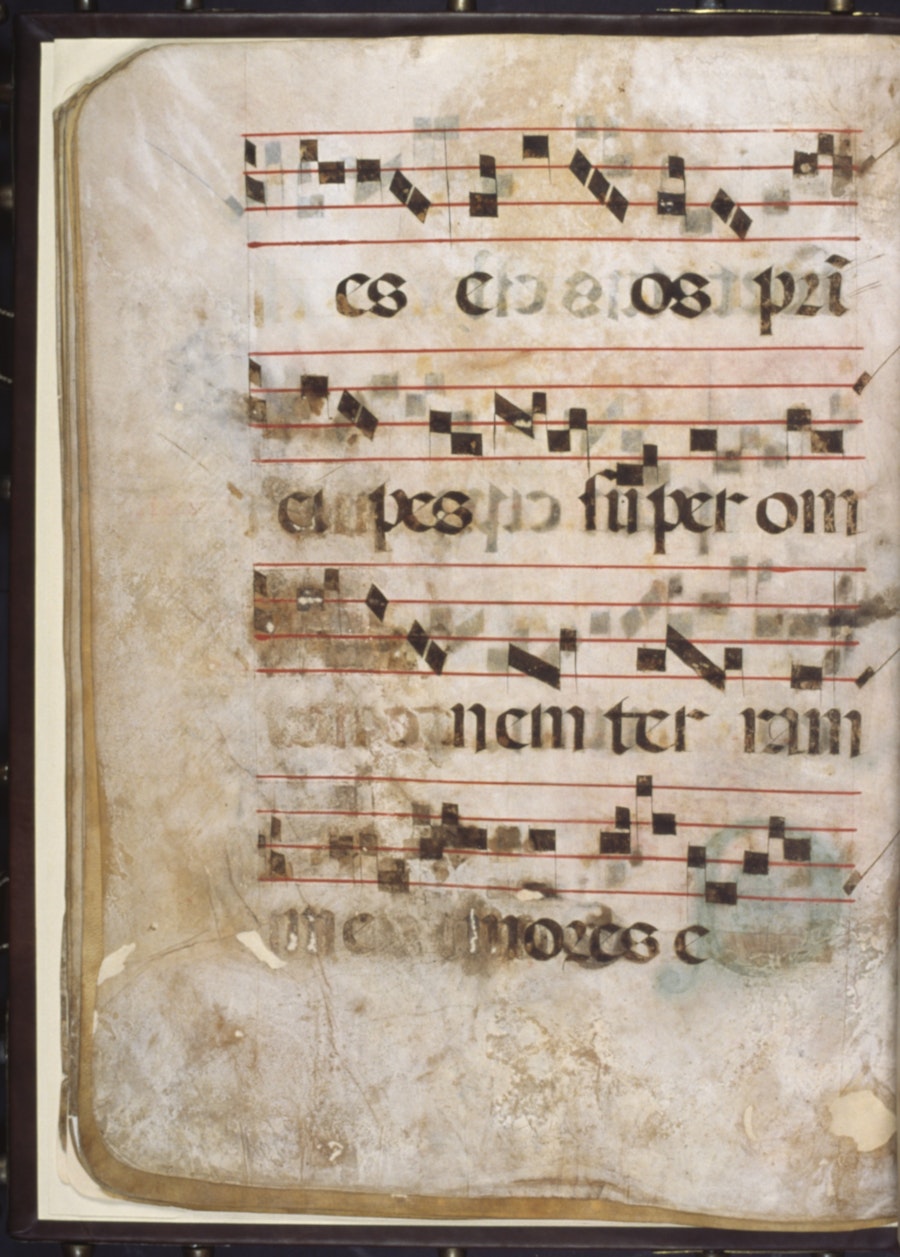 es e os pri̅
ci pes super om
nem ter ram
me mores e